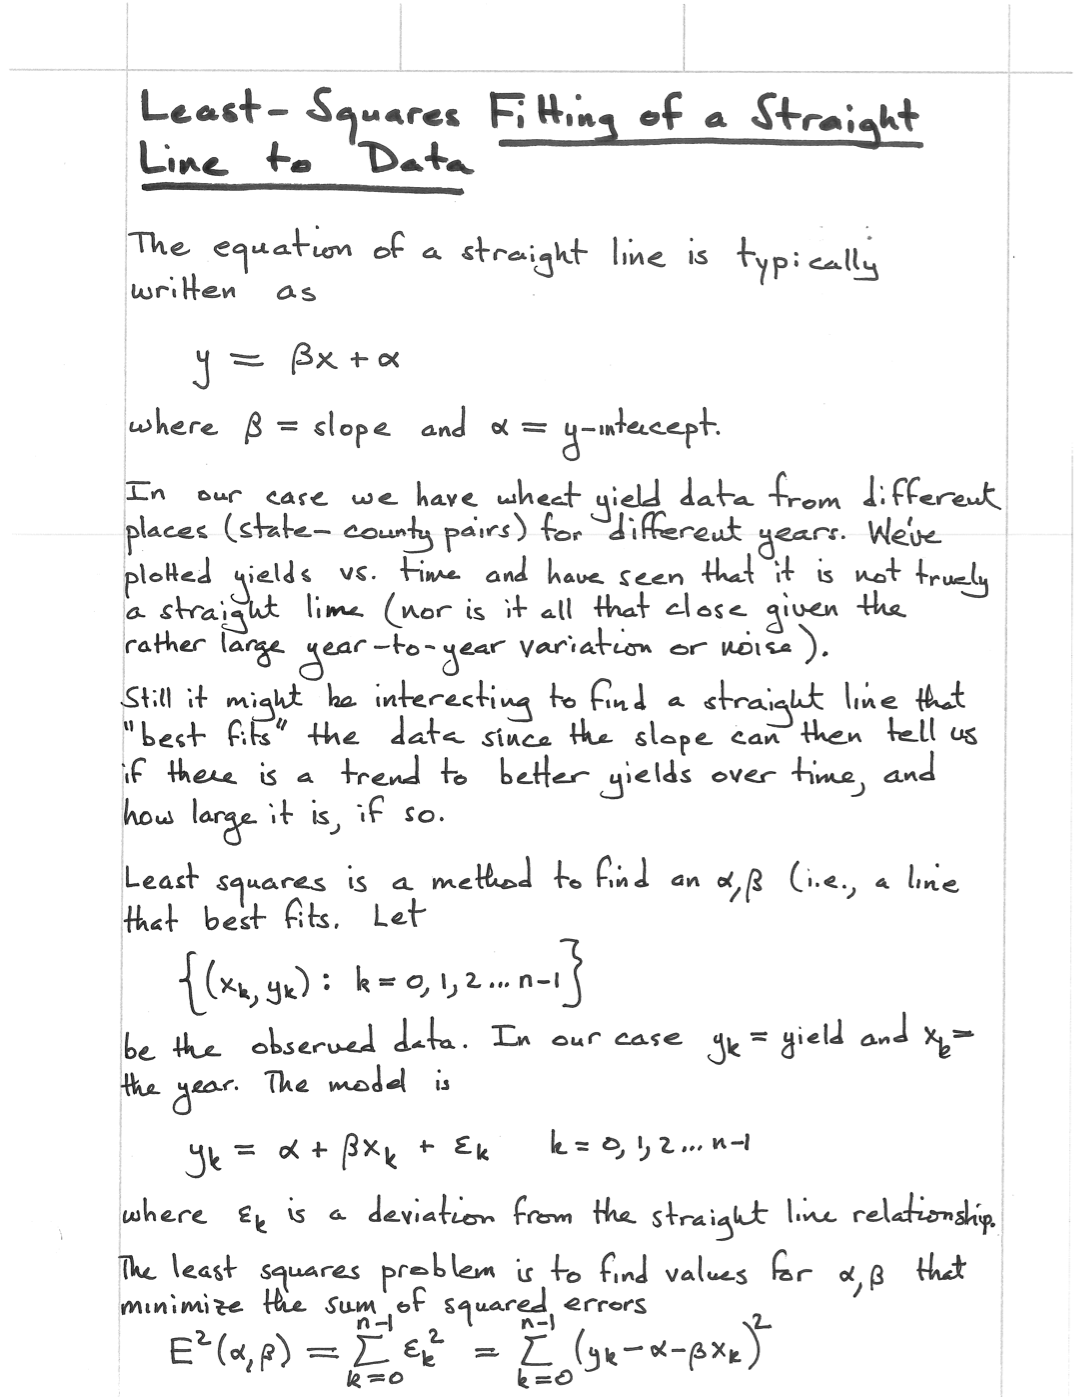 Least-Squares Fitting of a Straight
Line to Data
The equation of a straight line is typically
written as
y = βx + α
where β = slope and α = y-intercept.
In our case we have wheat yield data from different
places (state-county pairs) for different years. We've
plotted yields vs. time and have seen that it is not truely
a straight lime (nor is it all that close given the
rather large year-to-year variation or noise).
Still it might be interesting to find a straight line that
"best fits" the data since the slope can then tell us
if there is a trend to better yields over time, and
how large it is, if so.
Least squares is a method to find an α,β (i.e., a line
that best fits. Let
{(xₖ, yₖ): k = 0, 1, 2 ... n-1}
be the observed data. In our case yₖ = yield and xₖ =
the year. The model is
yₖ = α + βxₖ + εₖ k = 0, 1, 2 ... n-1
where εₖ is a deviation from the straight line relationship.
The least squares problem is to find values for α, β that
minimize the sum of squared errors
E²(α,β) = ∑_{k=0}^{n-1} εₖ² = ∑_{k=0}^{n-1} (yₖ-α-βxₖ)²